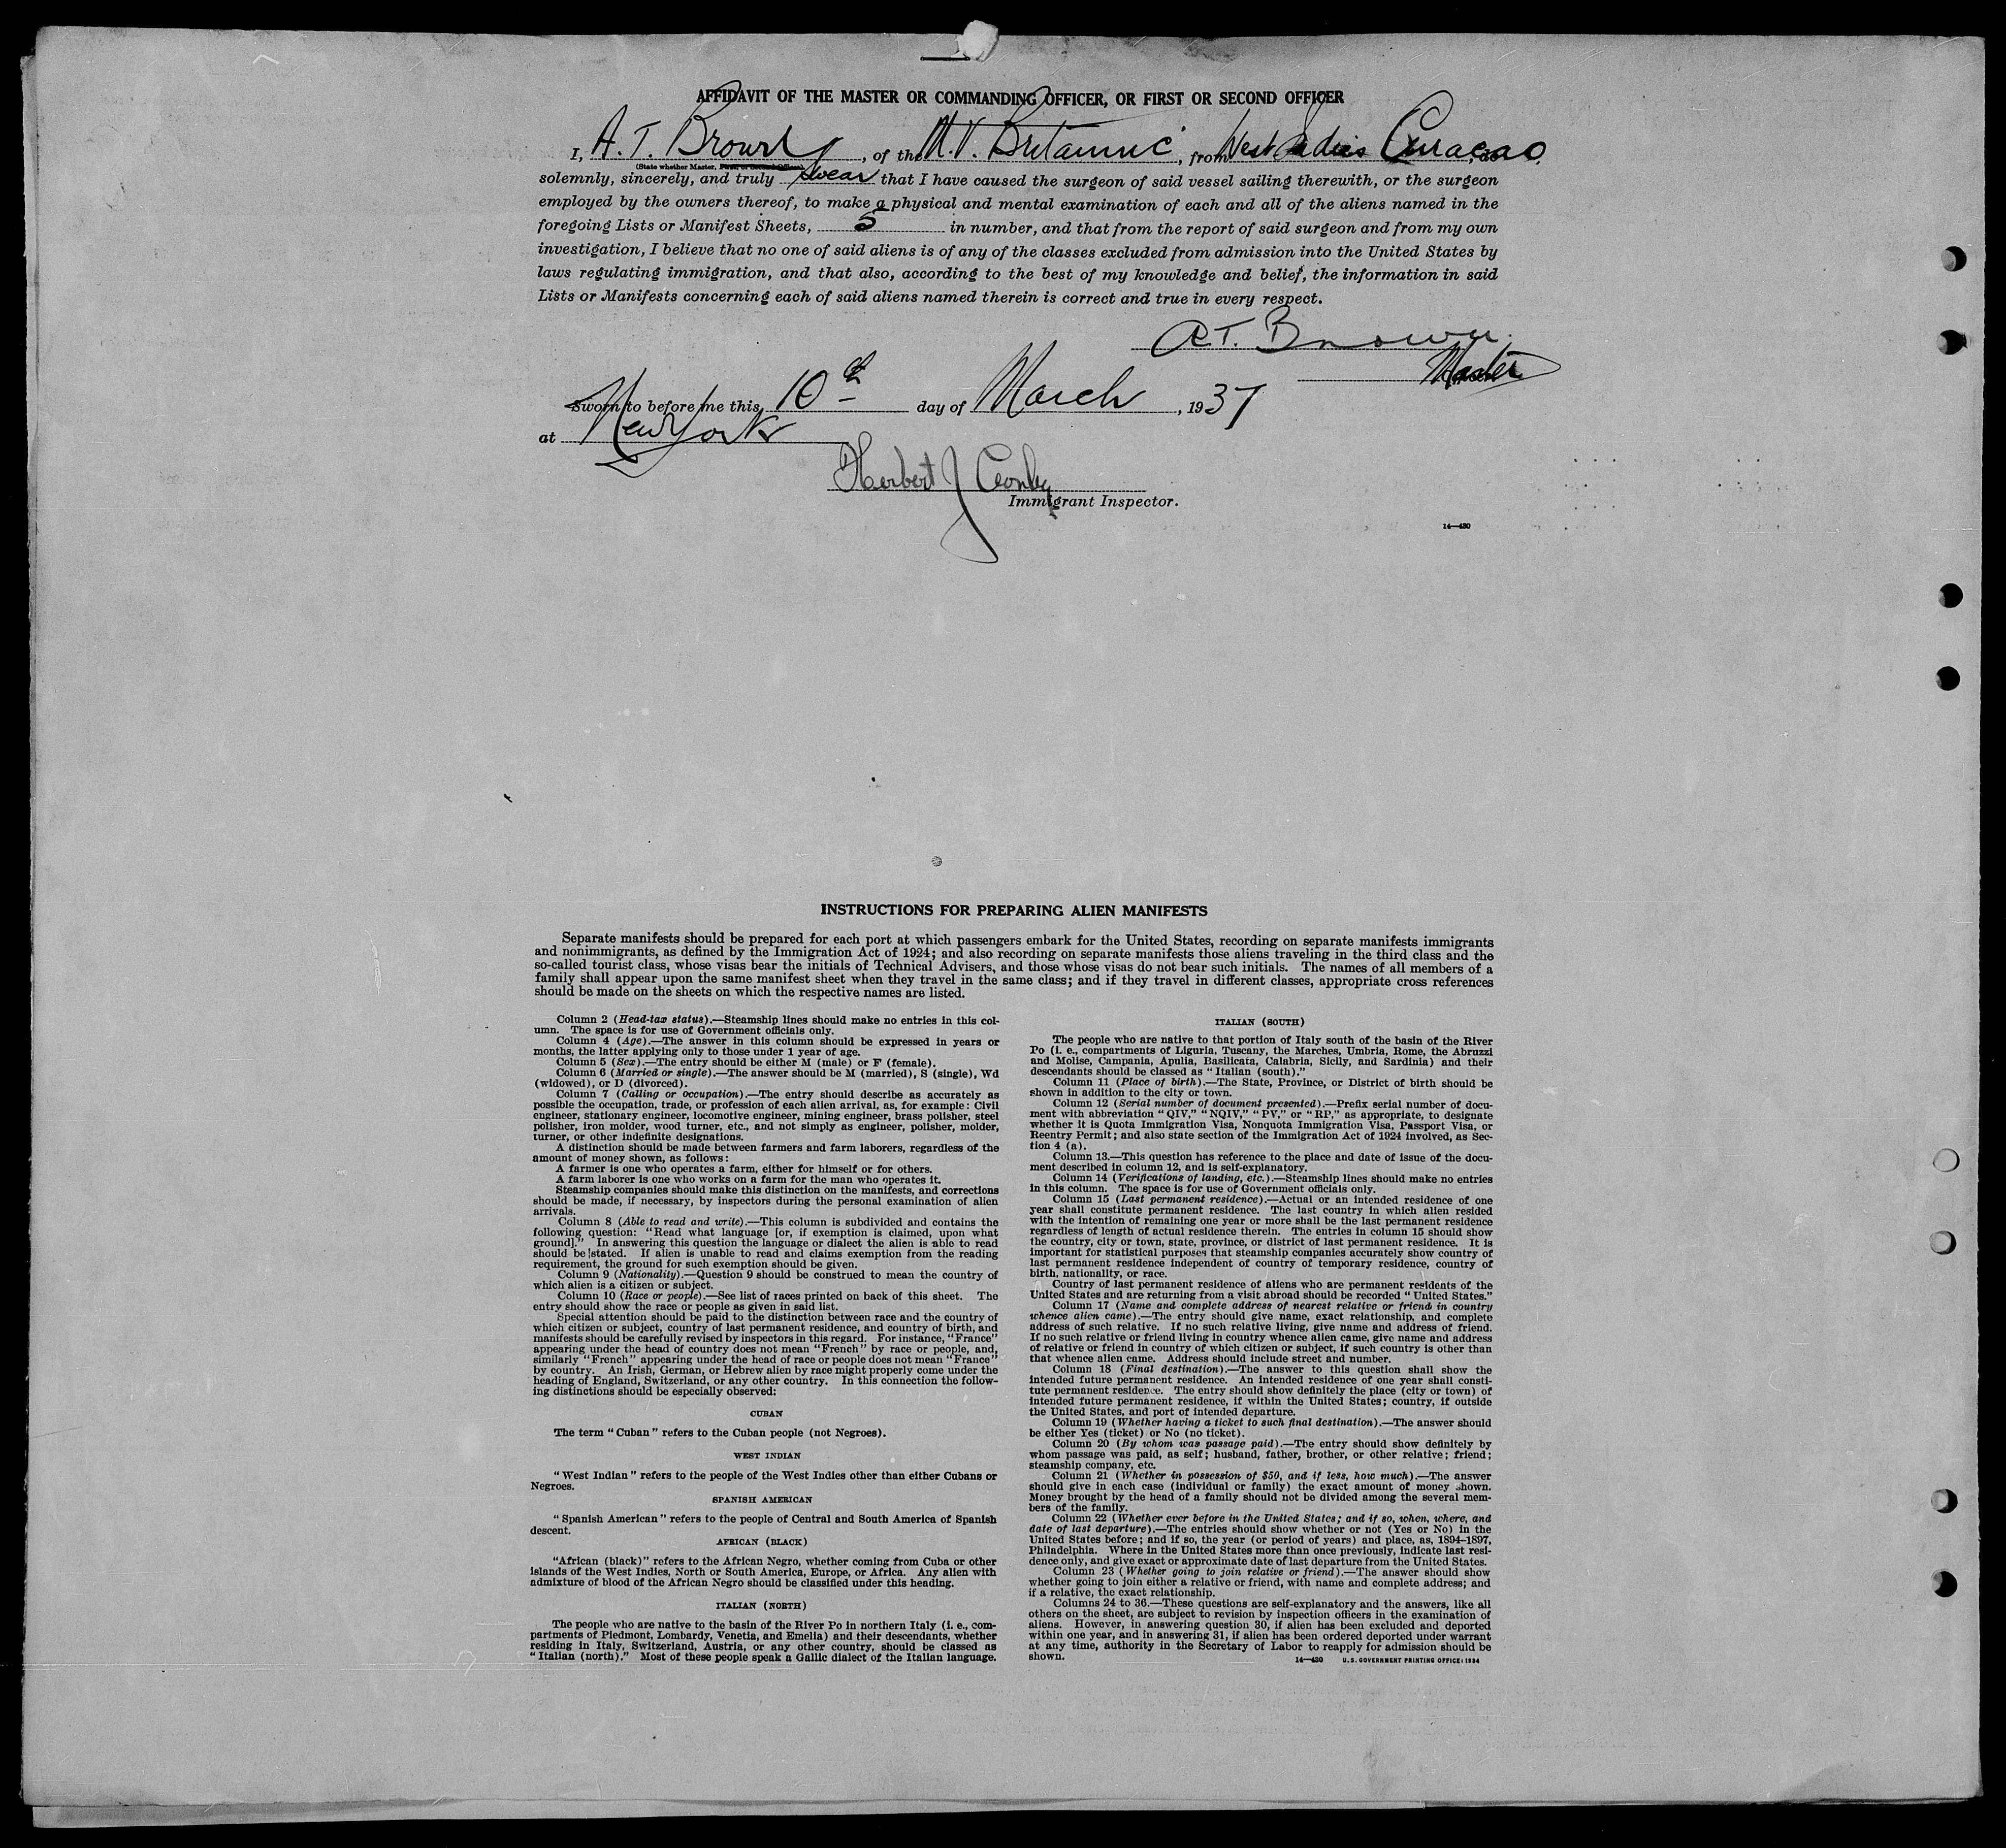 AFFIDAVIT OF THE MASTER OR COMMANDING OFFICER, OR FIRST OR SECOND OFFICER
I, A. T. Brown, of the M.V. Britannic, from West Indies Curacao, do
(State whether Master, First, or Second Officer)
solemnly, sincerely, and truly swear that I have caused the surgeon of said vessel sailing therewith, or the surgeon
employed by the owners thereof, to make a physical and mental examination of each and all of the aliens named in the
foregoing Lists or Manifest Sheets, 5 in number, and that from the report of said surgeon and from my own
investigation, I believe that no one of said aliens is of any of the classes excluded from admission into the United States by
laws regulating immigration, and that also, according to the best of my knowledge and belief, the information in said
Lists or Manifests concerning each of said aliens named therein is correct and true in every respect.
A.T. Brown
Master
Sworn to before me this 10th day of March, 1937
at New York
Herbert J
Immigrant Inspector.
14—430
INSTRUCTIONS FOR PREPARING ALIEN MANIFESTS
Separate manifests should be prepared for each port at which passengers embark for the United States, recording on separate manifests immigrants
and nonimmigrants, as defined by the Immigration Act of 1924; and also recording on separate manifests those aliens traveling in the third class and the
so-called tourist class, whose visas bear the initials of Technical Advisers, and those whose visas do not bear such initials. The names of all members of a
family shall appear upon the same manifest sheet when they travel in the same class; and if they travel in different classes, appropriate cross references
should be made on the sheets on which the respective names are listed.
Column 2 (Head-tax status).—Steamship lines should make no entries in this col-
umn. The space is for use of Government officials only.
Column 4 (Age).—The answer in this column should be expressed in years or
months, the latter applying only to those under 1 year of age.
Column 5 (Sex).—The entry should be either M (male) or F (female).
Column 6 (Married or single).—The answer should be M (married), S (single), Wd
(widowed), or D (divorced).
Column 7 (Calling or occupation).—The entry should describe as accurately as
possible the occupation, trade, or profession of each alien arrival, as, for example: Civil
engineer, stationary engineer, locomotive engineer, mining engineer, brass polisher, steel
polisher, iron molder, wood turner, etc., and not simply as engineer, polisher, molder,
turner, or other indefinite designations.
A distinction should be made between farmers and farm laborers, regardless of the
amount of money shown, as follows:
A farmer is one who operates a farm, either for himself or for others.
A farm laborer is one who works on a farm for the man who operates it.
Steamship companies should make this distinction on the manifests, and corrections
should be made, if necessary, by inspectors during the personal examination of alien
arrivals.
Column 8 (Able to read and write).—This column is subdivided and contains the
following question: "Read what language [or, if exemption is claimed, upon what
ground]." In answering this question the language or dialect the alien is able to read
should be stated. If alien is unable to read and claims exemption from the reading
requirement, the ground for such exemption should be given.
Column 9 (Nationality).—Question 9 should be construed to mean the country of
which alien is a citizen or subject.
Column 10 (Race or people).—See list of races printed on back of this sheet. The
entry should show the race or people as given in said list.
Special attention should be paid to the distinction between race and the country of
which citizen or subject, country of last permanent residence, and country of birth, and
manifests should be carefully revised by inspectors in this regard. For instance, "France"
appearing under the head of country does not mean "French" by race or people, and,
similarly "French" appearing under the head of race or people does not mean "France"
by country. An Irish, German, or Hebrew alien by race might properly come under the
heading of England, Switzerland, or any other country. In this connection the follow-
ing distinctions should be especially observed:
CUBAN
The term "Cuban" refers to the Cuban people (not Negroes).
WEST INDIAN
"West Indian" refers to the people of the West Indies other than either Cubans or
Negroes.
SPANISH AMERICAN
"Spanish American" refers to the people of Central and South America of Spanish
descent.
AFRICAN (BLACK)
"African (black)" refers to the African Negro, whether coming from Cuba or other
islands of the West Indies, North or South America, Europe, or Africa. Any alien with
admixture of blood of the African Negro should be classified under this heading.
ITALIAN (NORTH)
The people who are native to the basin of the River Po in northern Italy (i. e., com-
partments of Piedmont, Lombardy, Venetia, and Emelia) and their descendants, whether
residing in Italy, Switzerland, Austria, or any other country, should be classed as
"Italian (north)." Most of these people speak a Gallic dialect of the Italian language.
ITALIAN (SOUTH)
The people who are native to that portion of Italy south of the basin of the River
Po (i. e., compartments of Liguria, Tuscany, the Marches, Umbria, Rome, the Abruzzi
and Molise, Campania, Apulia, Basilicata, Calabria, Sicily, and Sardinia) and their
descendants should be classed as "Italian (south)."
Column 11 (Place of birth).—The State, Province, or District of birth should be
shown in addition to the city or town.
Column 12 (Serial number of document presented).—Prefix serial number of docu-
ment with abbreviation "QIV," "NQIV," "PV," or "RP," as appropriate, to designate
whether it is Quota Immigration Visa, Nonquota Immigration Visa, Passport Visa, or
Reentry Permit; and also state section of the Immigration Act of 1924 involved, as Sec-
tion 4 (a).
Column 13.—This question has reference to the place and date of issue of the docu-
ment described in column 12, and is self-explanatory.
Column 14 (Verifications of landing, etc.).—Steamship lines should make no entries
in this column. The space is for use of Government officials only.
Column 15 (Last permanent residence).—Actual or an intended residence of one
year shall constitute permanent residence. The last country in which alien resided
with the intention of remaining one year or more shall be the last permanent residence
regardless of length of actual residence therein. The entries in column 15 should show
the country, city or town, state, province, or district of last permanent residence. It is
important for statistical purposes that steamship companies accurately show country of
last permanent residence independent of country of temporary residence, country of
birth, nationality, or race.
Country of last permanent residence of aliens who are permanent residents of the
United States and are returning from a visit abroad should be recorded "United States."
Column 17 (Name and complete address of nearest relative or friend in country
whence alien came).—The entry should give name, exact relationship, and complete
address of such relative. If no such relative living, give name and address of friend.
If no such relative or friend living in country whence alien came, give name and address
of relative or friend in country of which citizen or subject, if such country is other than
that whence alien came. Address should include street and number.
Column 18 (Final destination).—The answer to this question shall show the
intended future permanent residence. An intended residence of one year shall consti-
tute permanent residence. The entry should show definitely the place (city or town) of
intended future permanent residence, if within the United States; country, if outside
the United States, and port of intended departure.
Column 19 (Whether having a ticket to such final destination).—The answer should
be either Yes (ticket) or No (no ticket).
Column 20 (By whom was passage paid).—The entry should show definitely by
whom passage was paid, as self; husband, father, brother, or other relative; friend;
steamship company, etc.
Column 21 (Whether in possession of $50, and if less, how much).—The answer
should give in each case (individual or family) the exact amount of money shown.
Money brought by the head of a family should not be divided among the several mem-
bers of the family.
Column 22 (Whether ever before in the United States; and if so, when, where, and
date of last departure).—The entries should show whether or not (Yes or No) in the
United States before; and if so, the year (or period of years) and place, as, 1894–1897,
Philadelphia. Where in the United States more than once previously, indicate last resi-
dence only, and give exact or approximate date of last departure from the United States.
Column 23 (Whether going to join relative or friend).—The answer should show
whether going to join either a relative or friend, with name and complete address; and
if a relative, the exact relationship.
Columns 24 to 36.—These questions are self-explanatory and the answers, like all
others on the sheet, are subject to revision by inspection officers in the examination of
aliens. However, in answering question 30, if alien has been excluded and deported
within one year, and in answering 31, if alien has been ordered deported under warrant
at any time, authority in the Secretary of Labor to reapply for admission should be
shown.
14—430 U.S. GOVERNMENT PRINTING OFFICE: 1934